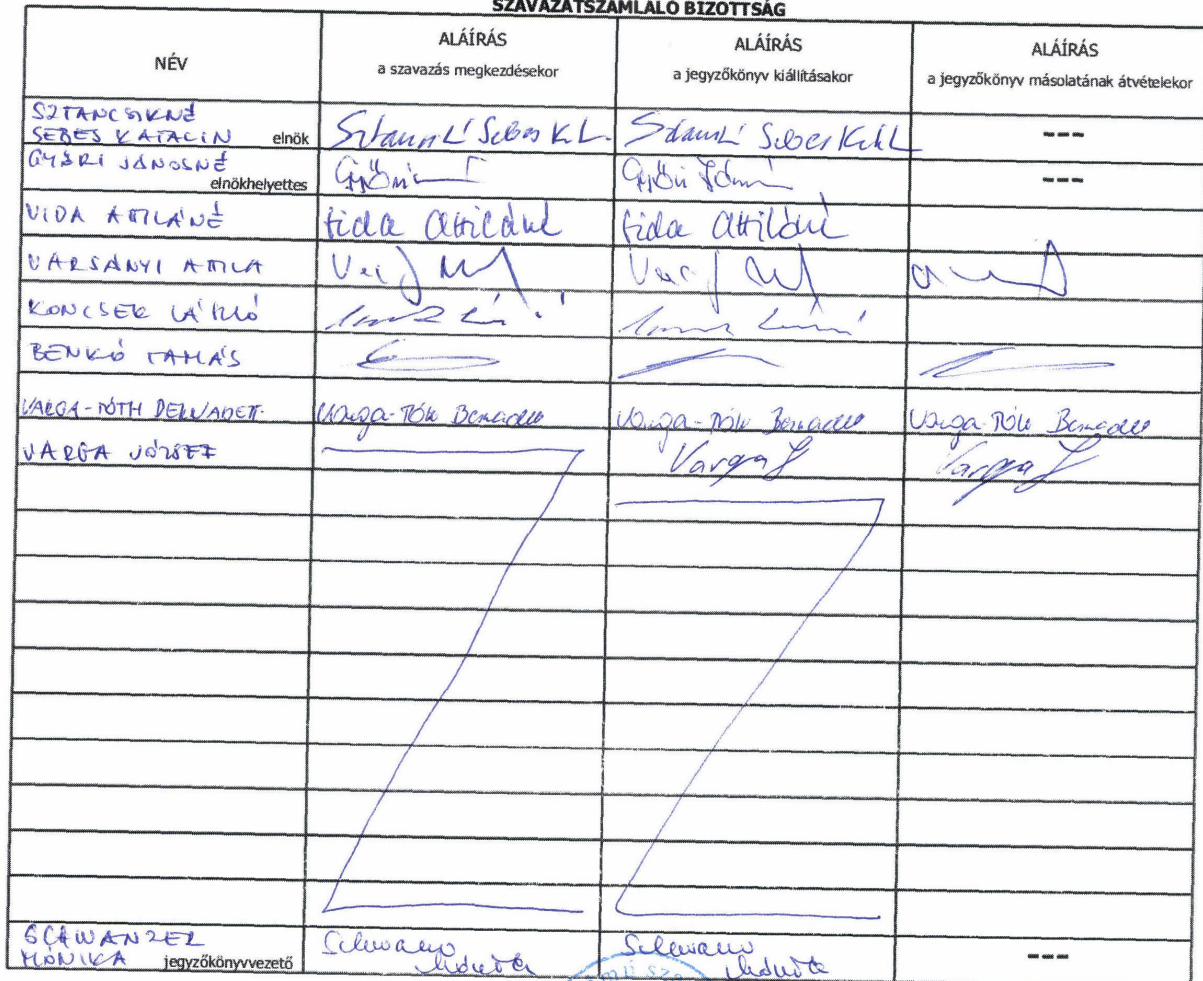 SZAVAZATSZÁMLÁLÓ BIZOTTSÁG
NÉV
ALÁÍRÁS
a szavazás megkezdésekor
ALÁÍRÁS
a jegyzőkönyv kiállításakor
ALÁÍRÁS
a jegyzőkönyv másolatának átvételekor
SZTANCSIKNÉ
SEBES KATALIN elnök
---
GYŐRI JÁNOSNÉ
elnökhelyettes
---
VIDA ATTILÁNÉ Vida Attiláné Vida Attiláné
VARSÁNYI ATTILA
KONCSEK LÁSZLÓ
BENKÓ TAMÁS
VARGA-TÓTH BERNADETT Varga-Tóth Bernadett Varga-Tóth Bernadett Varga-Tóth Bernadett
VARGA JÓZSEF Varga J Varga J
SCHWANZER
MÓNIKA jegyzőkönyvvezető
Mónika Mónika
---